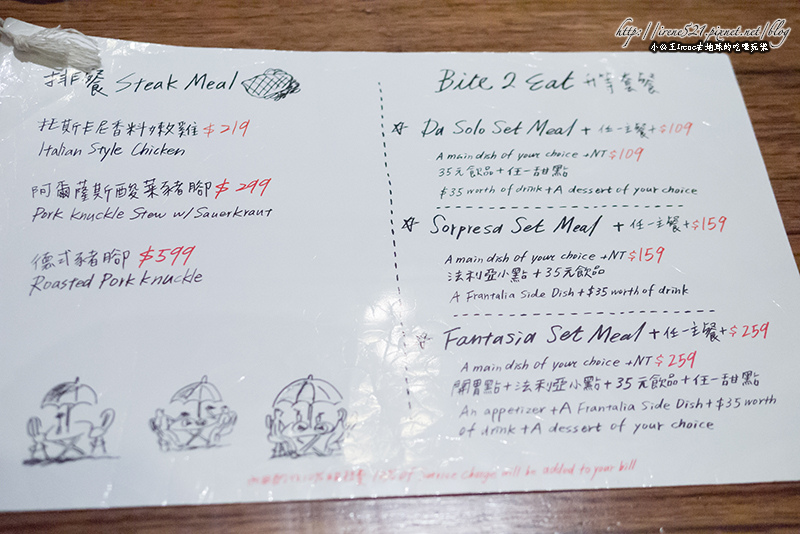 http://irene521.pixnet.net/blog
小公主Irene去地球的吃喝玩樂
排餐 Steak Meal
托斯卡尼香料嫩雞 $219
Italian Style Chicken
阿爾薩斯酸菜豬腳 $299
Pork Knuckle Stew w/Sauerkraut
德式豬腳 $599
Roasted Pork Knuckle
Bite 2 Eat 升等套餐
Da Solo Set Meal + 任一主餐 + $109
A main dish of your choice +NT$109
35元飲品+任一甜點
$35 worth of drink + A dessert of your choice
Sorpresa Set Meal + 任一主餐 + $159
A main dish of your choice +NT$159
法利亞小點+35元飲品
A Frantalia Side Dish + $35 worth of drink
Fantasia Set Meal + 任一主餐 + $259
A main dish of your choice +NT$259
開胃點+法利亞小點+35元飲品+任一甜點
An appetizer + A Frantalia Side Dish + $35 worth
of drink + A dessert of your choice
10% of service charge will be added to your bill